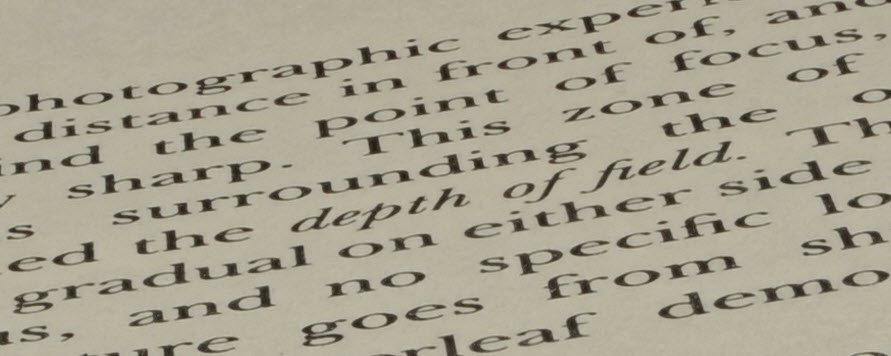 photographic experi
distance in front of, and
ind the point of focus,
y sharp. This zone of
s surrounding the o
ed the depth of field. Th
gradual on either side
us, and no specific lo
ure goes from sh
rleaf demo